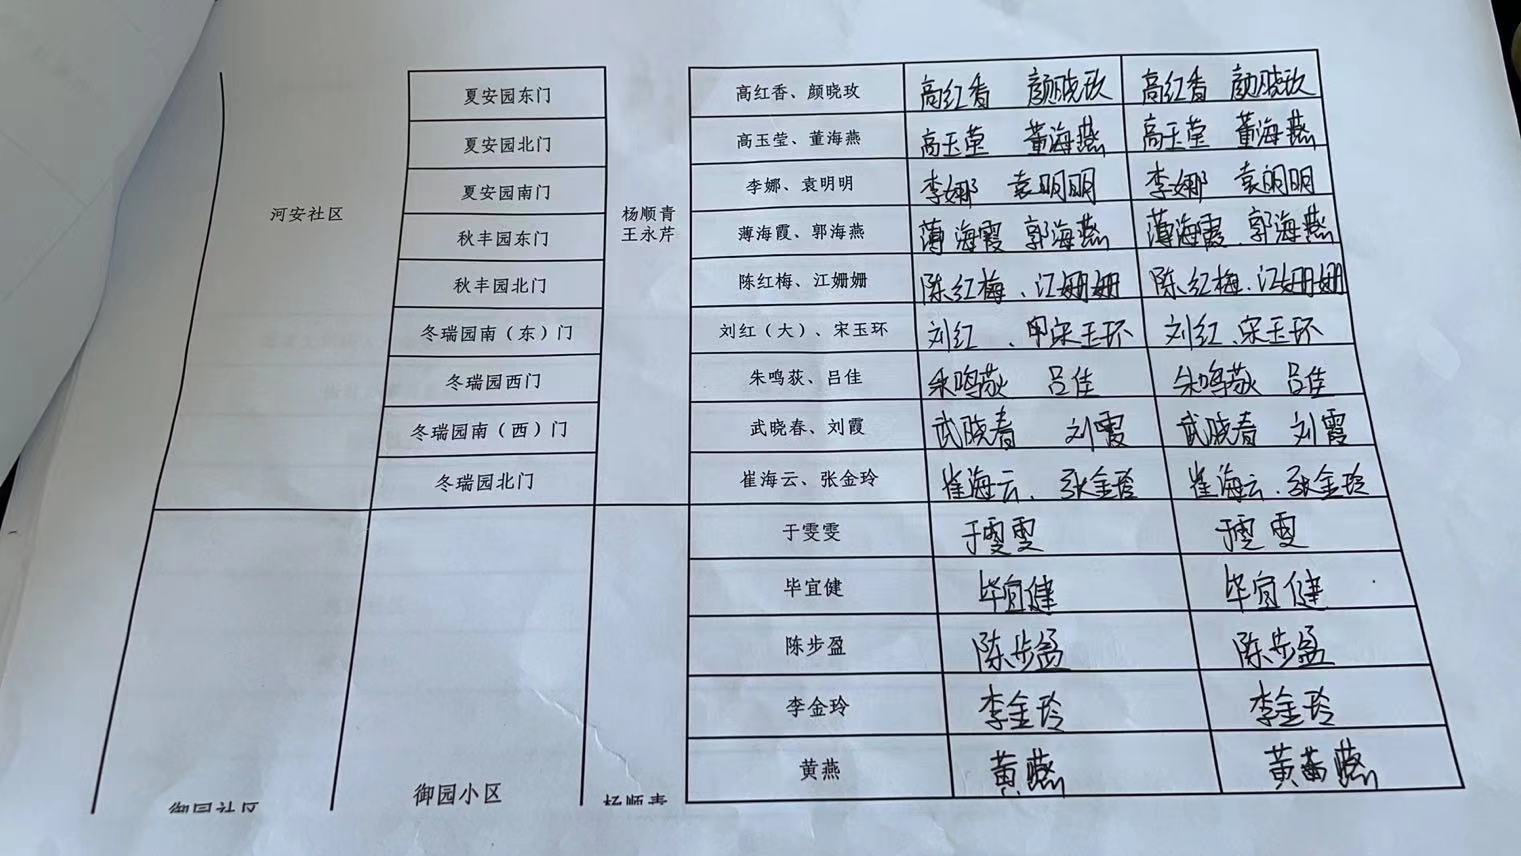 夏安园东门 高红香、颜晓玫 高红香 颜晓玫 高红香 颜晓玫
夏安园北门 高玉莹、董海燕 高玉莹 董海燕 高玉莹 董海燕
夏安园南门 李娜、袁明明 李娜 袁明明 李娜 袁明明
河安社区
杨顺青
王永芹
秋丰园东门 薄海霞、郭海燕 薄海霞 郭海燕 薄海霞、郭海燕
秋丰园北门 陈红梅、江姗姗 陈红梅、江姗姗 陈红梅、江姗姗
冬瑞园南（东）门 刘红（大）、宋玉环 刘红、宋玉环 刘红、宋玉环
冬瑞园西门 朱鸣荻、吕佳 朱鸣荻 吕佳 朱鸣荻 吕佳
冬瑞园南（西）门 武晓春、刘霞 武晓春 刘霞 武晓春 刘霞
冬瑞园北门 崔海云、张金玲 崔海云、张金玲 崔海云、张金玲
于雯雯 于雯雯 于雯雯
毕宜健 毕宜健 毕宜健
陈步盈 陈步盈 陈步盈
李金玲 李金玲 李金玲
黄燕 黄燕 黄燕
御园社区 御园小区 杨顺青